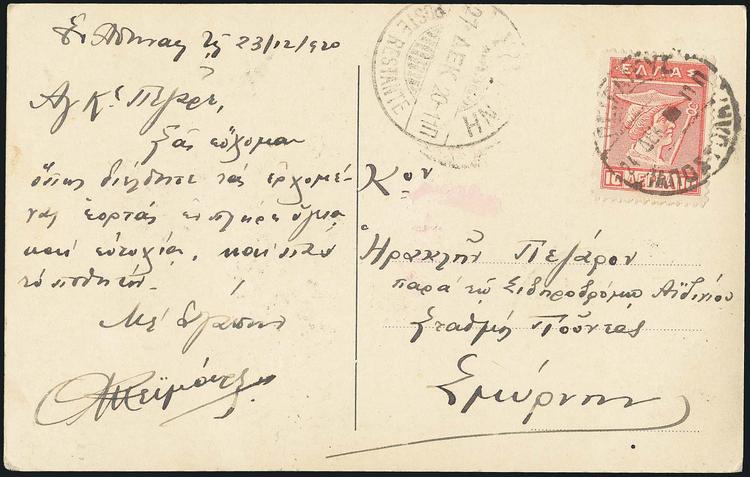 Ἐν Ἀθήναις τῇ 23/12/920
Ἀγ Κε Πεζάρε,
Σᾶς εὔχομαι
ὅπως διέλθητε τάς ἐρχομέ-
νας ἑορτάς ἐν πλήρει ὑγιείᾳ
καί εὐτυχίᾳ, καί πᾶν
τό ποθητόν.
Μέ ἀγάπην
POSTE RESTANTE
ΑΘΗΝΑΙ
24 ΔΕΚ 20
ΕΛΛΑΣ
10 ΛΕΠΤΑ 10
Κον
Ἡρακλῆν Πεζάρον
παρά τῷ Σιδηροδρόμῳ Αϊδινίου
Σταθμός Πούντας
Σμύρνην